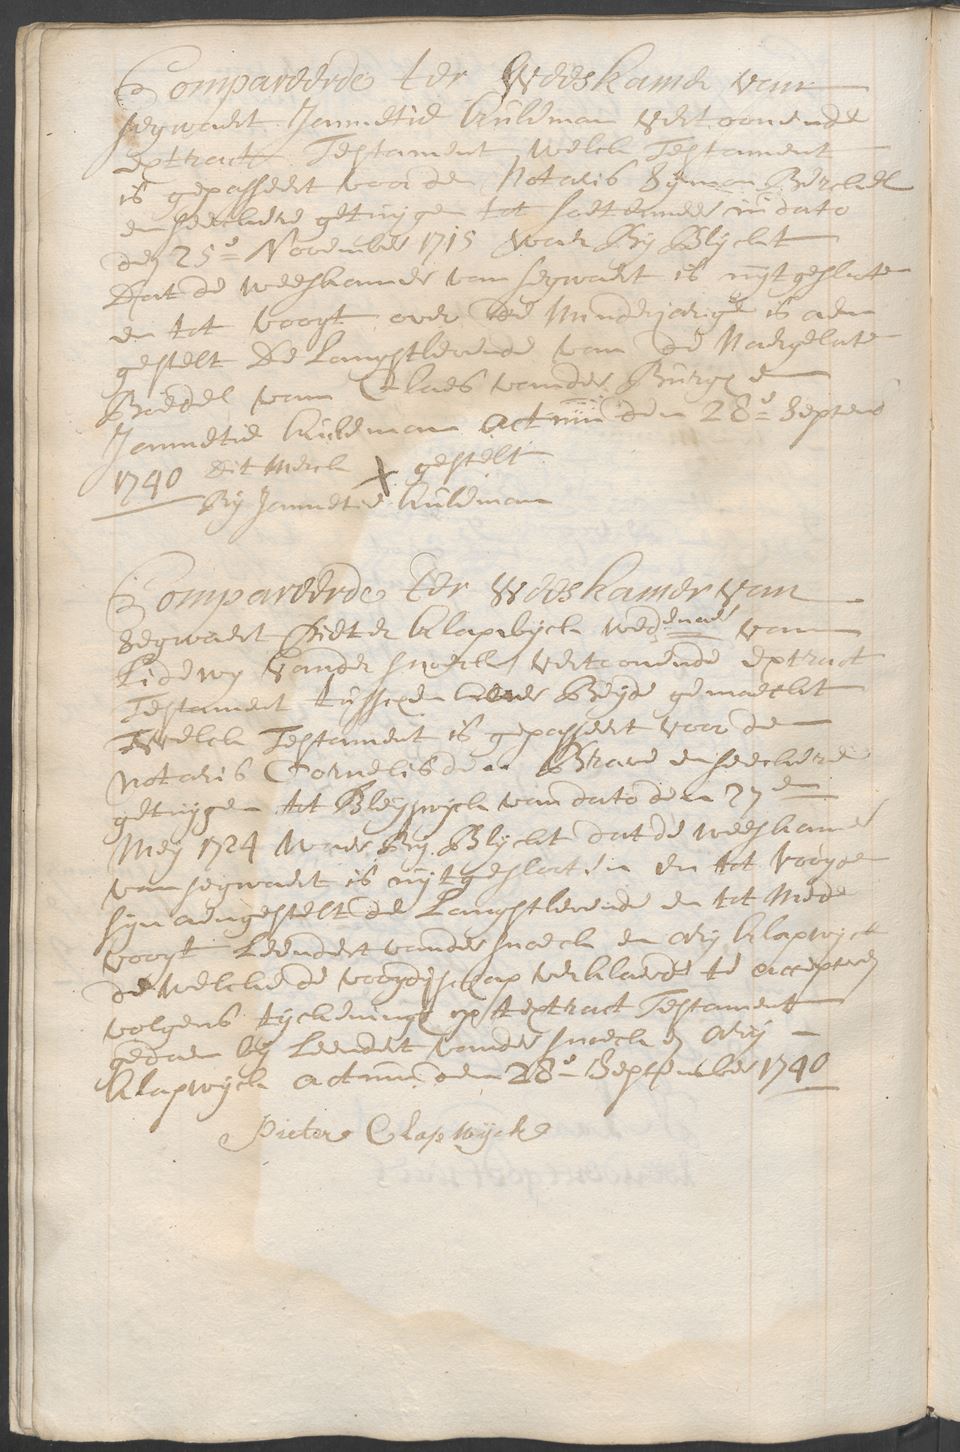 Compareerde ter Weeskamer van
segwaert Jannetie kuleman vertoonende
extract Testament welck Testament
is gepasseert voor den Notaris Symon Berckel
en seeckere getuygen tot soetermeer in dato
den 25e November 1715 waer By Blyckt
Dat de weeskamer van segwaert is uytgeslote
en tot voogt over de Minderjarige is aen
gestelt De Langstlevende van de Naergelate
Boedel van Claes vander Burg en
Jannetie kuleman actum den 28e Septemb
1740 Dit Merck X gestelt
By Jannetie kuleman
Compareerde ter Weeskamer van
Zegwaert Pieter klapwyck wedenaer van
Lidewy vander snoeck vertoonende extract
Testament tussen haer Beyde gemaeckt
welck Testament is gepasseert voor de
Notaris Cornelis den Brave en seeckere
getuygen tot Bleyswyck van dato den 27en
Mey 1724 waer By Blyckt dat de weeskamer
van segwaert is uytgeslooten en tot Vooyde
syn aengestelt de Langstlevende en tot Mede
voogt Leendert vander snoeck en Arij klapwyck
de welcke de voogdyschap verklaerde te accepteren
volgens tyckening op t extract Testament
gedaen by Leendert vander snoeck en Arij
klapwyck actum den 28e September 1740
Pieter Clapwijck